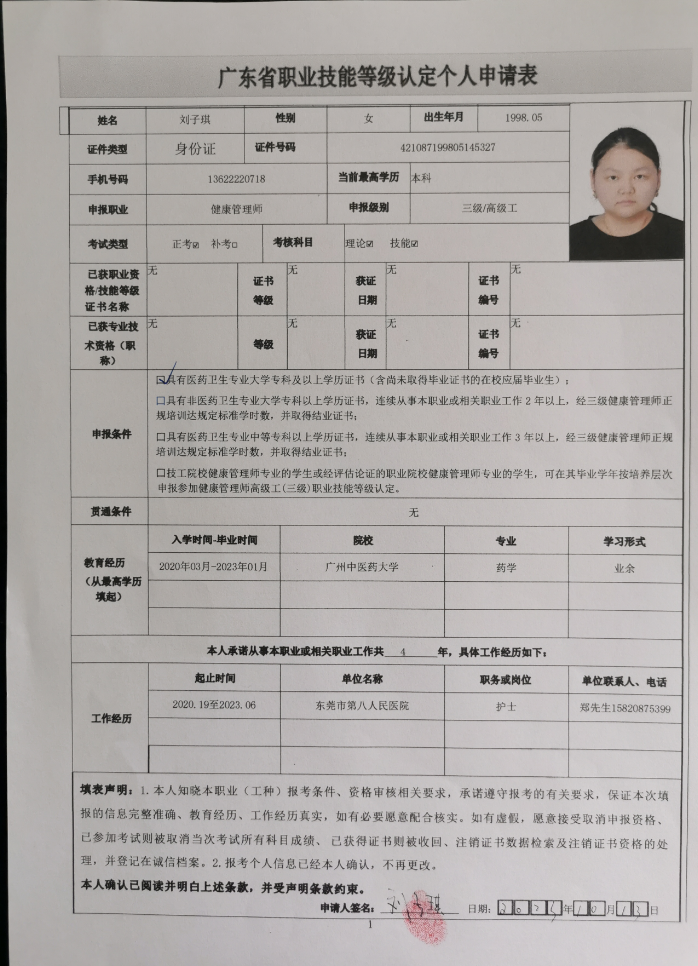 广东省职业技能等级认定个人申请表
姓名 刘子琪 性别 女 出生年月 1998.05
证件类型 身份证 证件号码 421087199805145327
手机号码 13622220718 当前最高学历 本科
申报职业 健康管理师 申报级别 三级/高级工
考试类型 正考☑ 补考□ 考核科目 理论☑ 技能☑
已获职业资格/技能等级证书名称 无 证书等级 无 获证日期 无 证书编号 无
已获专业技术资格（职称） 无 等级 无 获证日期 无 证书编号 无
申报条件
☑具有医药卫生专业大学专科及以上学历证书（含尚未取得毕业证书的在校应届毕业生）；
□具有非医药卫生专业大学专科以上学历证书，连续从事本职业或相关职业工作 2 年以上，经三级健康管理师正
规培训达规定标准学时数，并取得结业证书；
□具有医药卫生专业中等专科以上学历证书，连续从事本职业或相关职业工作 3 年以上，经三级健康管理师正规
培训达规定标准学时数，并取得结业证书；
□技工院校健康管理师专业的学生或经评估论证的职业院校健康管理师专业的学生，可在其毕业学年按培养层次
申报参加健康管理师高级工(三级)职业技能等级认定。
贯通条件 无
教育经历（从最高学历填起）
入学时间-毕业时间 院校 专业 学习形式
2020年03月-2023年01月 广州中医药大学 药学 业余
本人承诺从事本职业或相关职业工作共 4 年，具体工作经历如下：
工作经历
起止时间 单位名称 职务或岗位 单位联系人、电话
2020.19至2023.06 东莞市第八人民医院 护士 郑先生15820875399
填表声明：1.本人知晓本职业（工种）报考条件、资格审核相关要求，承诺遵守报考的有关要求，保证本次填
报的信息完整准确、教育经历、工作经历真实，如有必要愿意配合核实。如有虚假，愿意接受取消申报资格、
已参加考试则被取消当次考试所有科目成绩、已获得证书则被收回、注销证书数据检索及注销证书资格的处
理，并登记在诚信档案。2.报考个人信息已经本人确认，不再更改。
本人确认已阅读并明白上述条款，并受声明条款约束。
申请人签名： 刘子琪 日期：2023年10月13日
1